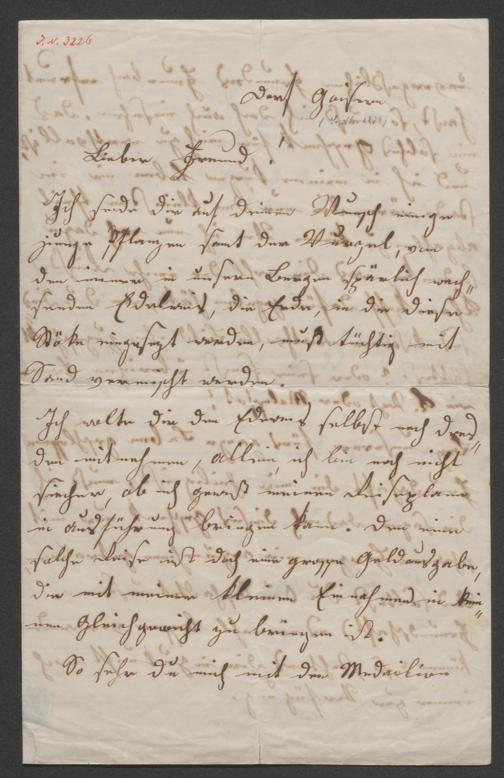 J. N. 3226
Dorf Goisern
Lieber Freund!
Ich sende dir auf deinen Wunsch einige
junge Pflanzen samt der Wurzel, von
den immer in unsern Bergen spärlich wach-
senden Edelweis, die Erde, in die diese
Stöke eingesezt werden, muß tüchtig mit
Sand vermischt werden.
Ich wollte dir den Edelweis selbst nach Dres-
den mitnehmen, allein, ich bin noch nicht
sicher, ob ich gewiß meinen Reiseplan
in Ausführung bringen kann. Den eine
solche Reise ist doch eine grosse Geldausgabe,
die mit meiner kleinen Einnahmen in kei-
nen Gleichgewicht zu bringen ist.
So sehr du mich mit den Medaillion